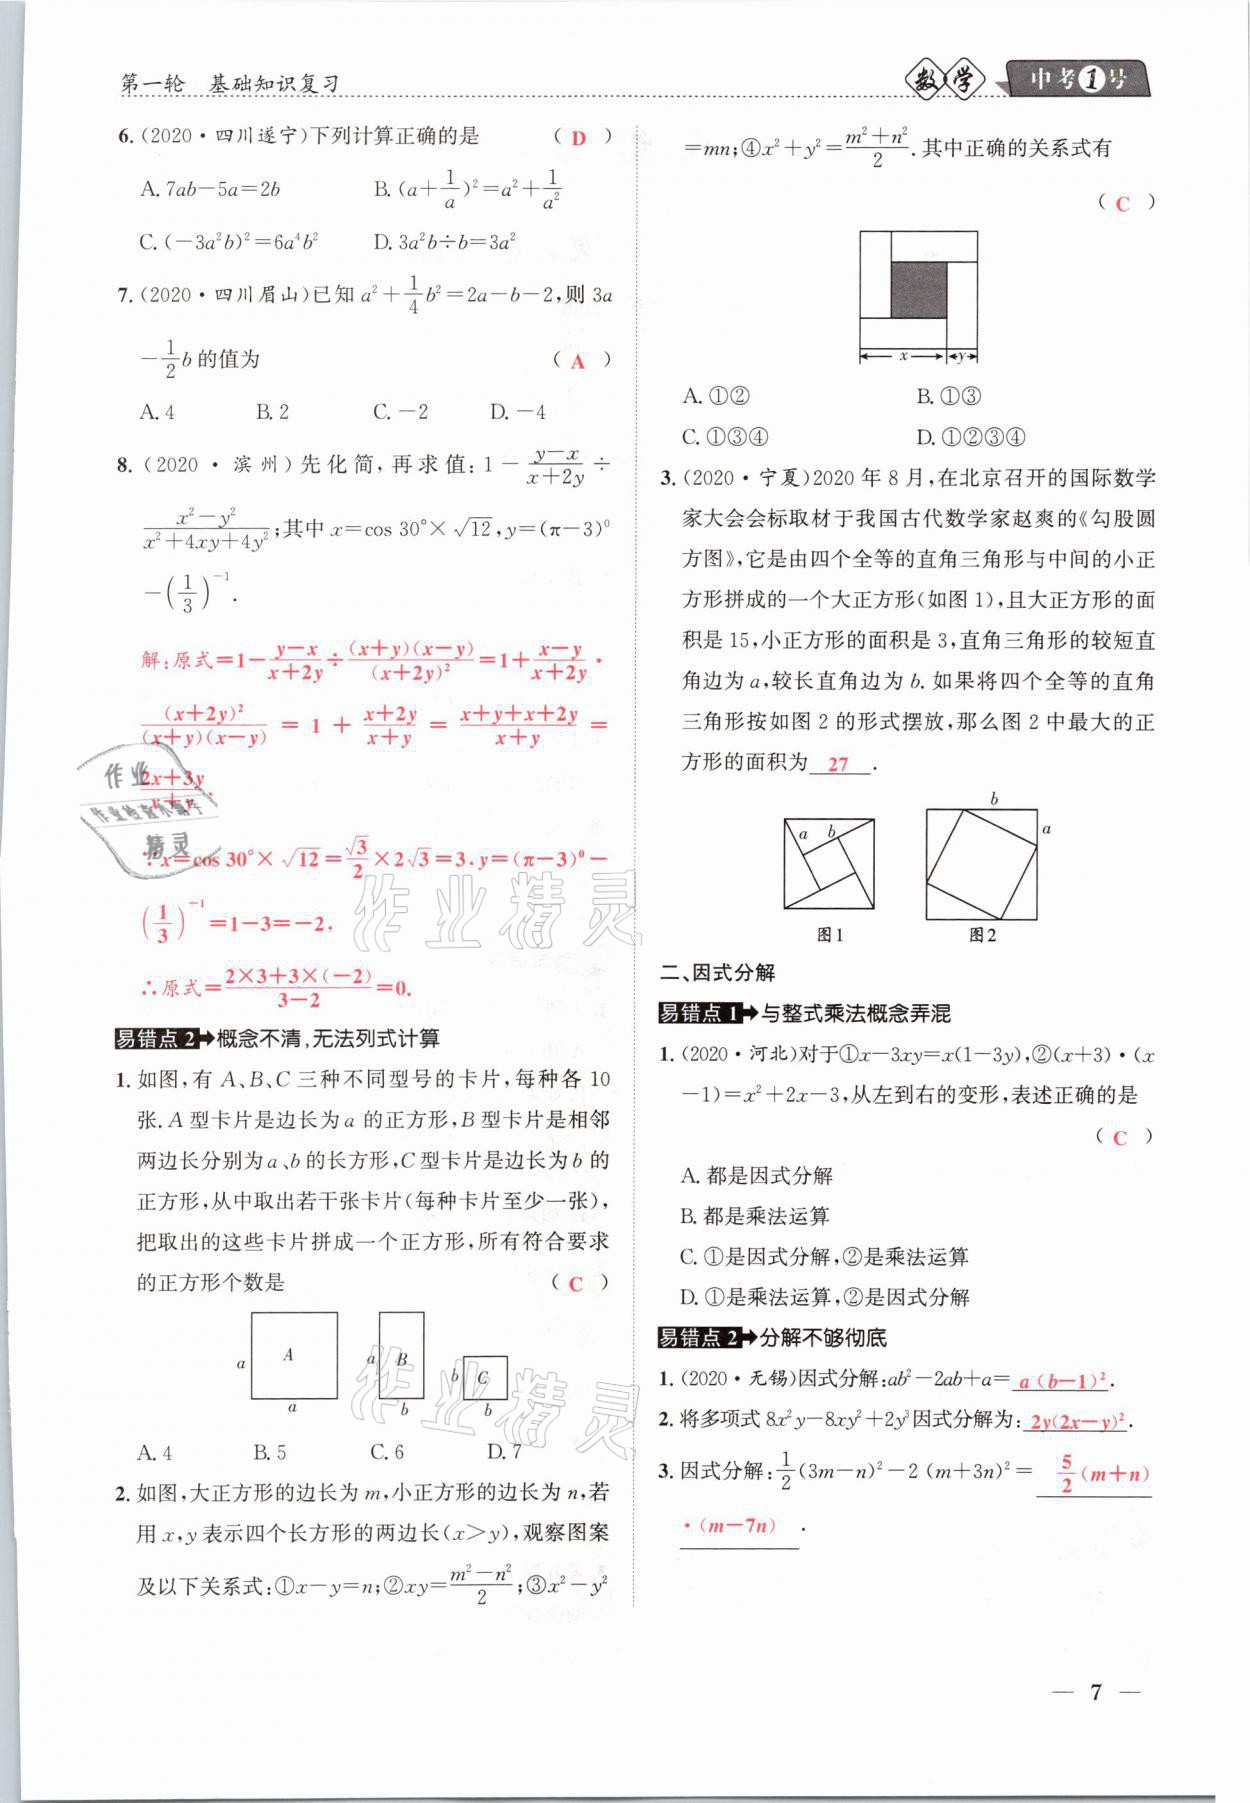 第一轮 基础知识复习
数学 中考1号
6.(2020·四川遂宁)下列计算正确的是 ( D )
A. 7ab-5a=2b B. (a+1/a)²=a²+1/a²
C. (-3a²b)²=6a⁴b² D. 3a²b÷b=3a²
7.(2020·四川眉山)已知 a²+1/4b²=2a-b-2,则 3a
-1/2b 的值为 ( A )
A. 4 B. 2 C. -2 D. -4
8.(2020·滨州)先化简,再求值:1-(y-x)/(x+2y)÷
(x²-y²)/(x²+4xy+4y²);其中 x=cos 30°×√12,y=(π-3)⁰
-(1/3)⁻¹.
解:原式=1-(y-x)/(x+2y)÷(x+y)(x-y)/(x+2y)²=1+(x-y)/(x+2y)·
(x+2y)²/(x+y)(x-y)=1+(x+2y)/(x+y)=(x+y+x+2y)/(x+y)=
(2x+3y)/(x+y).
∵x=cos 30°×√12=√3/2×2√3=3,y=(π-3)⁰-
(1/3)⁻¹=1-3=-2.
∴原式=(2×3+3×(-2))/(3-2)=0.
易错点 2→概念不清,无法列式计算
1. 如图,有 A、B、C 三种不同型号的卡片,每种各 10
张. A 型卡片是边长为 a 的正方形,B 型卡片是相邻
两边长分别为 a、b 的长方形,C 型卡片是边长为 b 的
正方形,从中取出若干张卡片(每种卡片至少一张),
把取出的这些卡片拼成一个正方形,所有符合要求
的正方形个数是 ( C )
a A a a B b b C b
A. 4 B. 5 C. 6 D. 7
2. 如图,大正方形的边长为 m,小正方形的边长为 n,若
用 x,y 表示四个长方形的两边长(x>y),观察图案
及以下关系式:①x-y=n;②xy=(m²-n²)/2;③x²-y²
=mn;④x²+y²=(m²+n²)/2. 其中正确的关系式有
( C )
x y
A. ①② B. ①③
C. ①③④ D. ①②③④
3.(2020·宁夏)2020 年 8 月,在北京召开的国际数学
家大会会标取材于我国古代数学家赵爽的《勾股圆
方图》,它是由四个全等的直角三角形与中间的小正
方形拼成的一个大正方形(如图 1),且大正方形的面
积是 15,小正方形的面积是 3,直角三角形的较短直
角边为 a,较长直角边为 b. 如果将四个全等的直角
三角形按如图 2 的形式摆放,那么图 2 中最大的正
方形的面积为 27 .
a b b a
图 1 图 2
二、因式分解
易错点 1→与整式乘法概念弄混
1.(2020·河北)对于①x-3xy=x(1-3y),②(x+3)·(x
-1)=x²+2x-3,从左到右的变形,表述正确的是
( C )
A. 都是因式分解
B. 都是乘法运算
C. ①是因式分解,②是乘法运算
D. ①是乘法运算,②是因式分解
易错点 2→分解不够彻底
1.(2020·无锡)因式分解:ab²-2ab+a= a(b-1)² .
2. 将多项式 8x²y-8xy²+2y³因式分解为: 2y(2x-y)² .
3. 因式分解:1/2(3m-n)²-2 (m+3n)²= 5/2(m+n)
·(m-7n) .
— 7 —
作业
作业检查小帮手
精灵
作业精灵
作业精灵